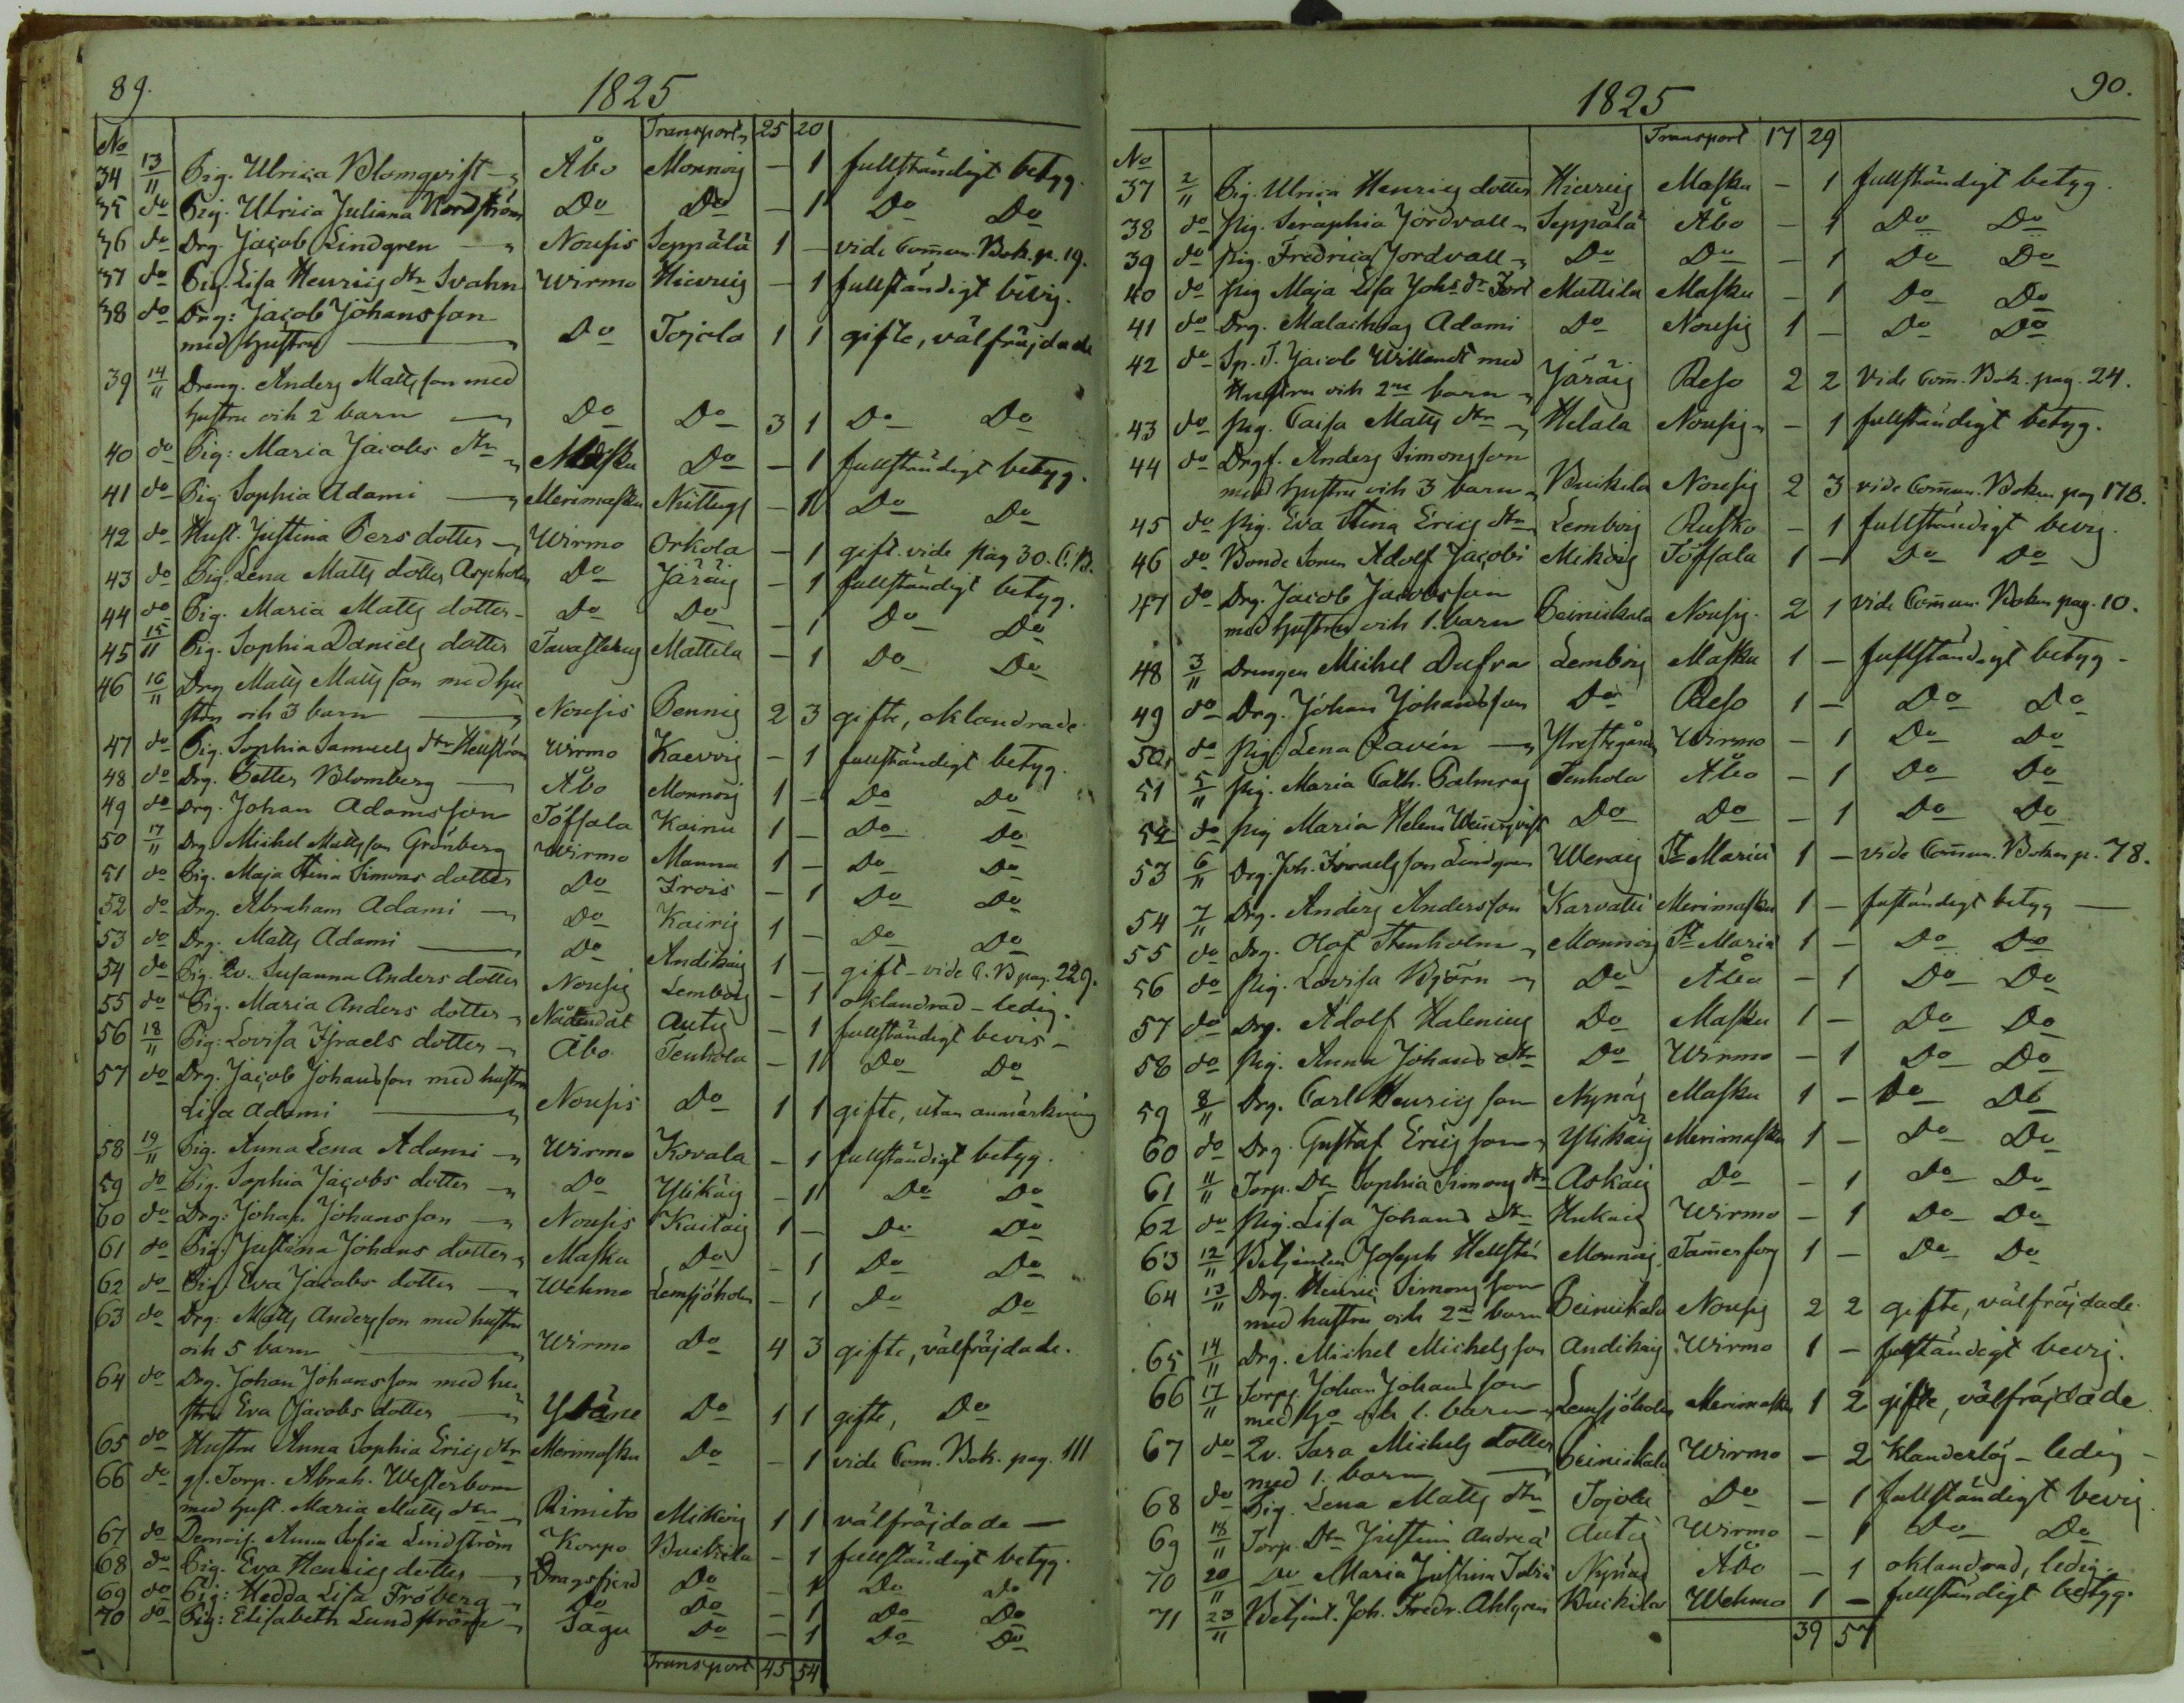 89.
1825
No Transport 25 20
34 13/11 Pig. Ulrica Blomqvist Åbo Monnois — 1 fullständigt betyg.
35 do Pig. Ulrica Juliana Nordström Do Do — 1 Do Do
36 do Drg. Jacob Lindgren Nousis Seppälä 1 — vide Com̄un. Bok. p. 19.
37 do Pig. Lisa Henrics dtr Svahn Wirmo Hiervis — 1 fullständigt bevis.
38 do Drg: Jacob Johansson
med hustru Do Tojola 1 1 gifte, välfräjdade
39 14/11 Dreng. Anders Mattsson med
hustru och 2 barn Do Do 3 1 Do Do
40 do Pig: Maria Jacobs dtr Masku Do — 1 fullständigt betyg.
41 do Pig Sophia Adami Merimasku — 1 Do Do
42 do Hust. Justina Pers dotter Wirmo Orkola — 1 gift. vide pag 30. C. B.
43 do Pig. Lena Matts dotter Do Järäis — 1 fullständigt betyg.
44 do Pig. Maria Matts dotter Do Do — 1 Do Do
45 15/11 Pig. Sophia Daniels dotter Tavastehus Mattila — 1 Do Do
46 16/11 Drg Matts Mattsson med hu
stru och 3 barn Nousis Pennis 2 3 gifte, oklandrade
47 do Pig. Sophia Samuels dtr Wirmo Kaervois — 1 fullständigt betyg.
48 do Drg. Petter Blomberg Åbo Monnois 1 — Do Do
49 do Drg. Johan Adamsson Töfsala Kainu 1 — Do Do
50 17/11 Drg. Michel Mattsson Grönberg Wirmo Manna 1 — Do Do
51 do Pig. Maja Stina Simons dotter Do Frois — 1 Do Do
52 do Drg. Abraham Adami Do Kairis 1 — Do Do
53 do Drg. Matts Adami Do Andikais 1 — gift – vide C. B. pag. 229.
54 do Pig. Qv. Susanna Anders dotter Nousis Lembois — 1 oklandrad – ledig.
55 do Pig. Maria Anders dotter Nådendal Autis — 1 fullständigt bevis –
56 18/11 Pig: Lovisa Israels dotter Åbo Tenhola — 1 Do Do
57 do Drg. Jacob Johansson med hustru
Lisa Adami Nousis Do 1 1 gifte, utan anmärkning
58 19/11 Pig. Anna Lena Adami Wirmo Kovala — 1 fullständigt betyg.
59 do Pig. Sophia Jacobs dotter Do Ylikäis — 1 Do Do
60 do Drg: Johan Johansson Nousis Kaitais 1 — Do Do
61 do Pig. Justina Johans dotter Masku Do — 1 Do Do
62 do Pig. Eva Jacobs dotter Wehmo Lemsjöholm — 1 Do Do
63 do Drg: Matts Andersson med hustru
och 5 barn Wirmo Do 4 3 gifte, välfräjdade.
64 do Drg. Johan Johansson med hu
stru Eva Jacobs dotter Yläne Do 1 1 gifte, Do
65 do Hustru Anna Sophia Erics dtr Merimasku Do — 1 vide Com. Bok. pag. 111
66 do gl. Torp. Abrah. Westerbom
med hust. Maria Matts dtr Rimito Mikois 1 1 välfräjdade —
67 do Demois. Anna Sofia Lindström Korpo Buikila — 1 fullständigt betyg.
68 do Pig. Eva Henrics dotter Dragsfjerd Do — 1 Do Do
69 do Pig: Hedda Lisa Fröberg Do Do — 1 Do Do
70 do Pig: Elisabeth Lundström Sagu Do — 1 Do Do
Transport 45 54
90.
1825
No Transport 17 29
37 2/11 Pig. Ulrica Henrics dotter Hiervis Masku — 1 fullständigt betyg.
38 do Pig. Seraphia Jordvall Seppälä Åbo — 1 Do Do
39 do Pig. Fredrica Jordvall Do Do — 1 Do Do
40 do Pig Maja Lisa Johs dr Mattila Masku — 1 Do Do
41 do Drg. Malachias Adami Do Nousis 1 — Do Do
42 do Sp. T. Jacob Willandt med
Hustru och 2ne barn Järäis Reso 2 2 Vide Com̄. Bok. pag. 24.
43 do Pig. Caisa Matts dtr Helala Nousis — 1 fullständigt betyg.
44 do Drgf. Anders Simonsson
med hustru och 3 barn Buikila Nousis 2 3 vide Com̄un. Boken pag 178.
45 do Pig. Eva Stina Erics dtr Lembois Rusko — 1 fullständigt bevis.
46 do Bonde Sonen Adolf Jacobi Mikois Töfsala 1 — Do Do
47 do Drg. Jacob Jacobsson
med hustru och 1. barn Peiniskala Nousis 2 1 vide Com̄un. Boken pag. 10.
48 3/11 Drengen Michel Dufva Lembois Masku 1 — fullständigt betyg –
49 do Drg. Johan Johansson Do Reso 1 — Do Do
50 do Pig. Lena Ravén Prestegården Wirmo — 1 Do Do
51 5/11 Pig. Maria Cath. Palmros Tenhola Åbo — 1 Do Do
52 do Pig Maria Helena Wennqvist Do Do — 1 Do Do
53 6/11 Drg. Joh. Israelsson Lindgren Werais St Mariæ 1 — vide Com̄un. Boken p. 78.
54 7/11 Drg. Anders Andersson Karvatti Merimasku 1 — fuständigt betyg —
55 do Drg. Olof Stenholm Monnois St Mariæ 1 — Do Do
56 do Pig. Lovisa Björn Do Åbo — 1 Do Do
57 do Drg. Adolf Halenius Do Masku 1 — Do Do
58 do Pig. Anna Johans dtr Do Wirmo — 1 Do Do
59 8/11 Drg. Carl Henricsson Nynäs Masku 1 — Do Do
60 do Drg. Gustaf Ericsson Ylikäis Merimasku 1 — Do Do
61 11/11 Torp. Dtr Sophia Simons dtr Askais Do — 1 Do Do
62 do Pig. Lisa Johans dtr Hukais Wirmo — 1 Do Do
63 12/11 Betjenten Joseph Hellstén Monnois Tam̄erfors 1 — Do Do
64 13/11 Drg. Henric Simonsson
med hustru och 2ne barn Peiniskala Nousis 2 2 gifte, välfräjdade
65 14/11 Drg. Michel Michelsson Andikais Wirmo 1 — fullständigt bevis.
66 17/11 Torp. Johan Johansson
med ho och 1. barn Lemsjöholm Merimasku 1 2 gifte, välfräjdade
67 do Qv. Sara Michels dotter
med 1. barn Peiniskala Wirmo — 2 Klanderlös – ledig –
68 do Pig. Lena Matts dtr Tojola Do — 1 fullständigt bevis
69 18/11 Torp. Dtr Justina Andreæ Autis Wirmo — 1 Do Do
70 20/11 Maria Justina Nynäs Åbo — 1 oklandrad, ledig.
71 23/11 Betjent. Joh. Fredr. Ahlgren Buikila Wehmo 1 — fullständigt betyg.
39 57